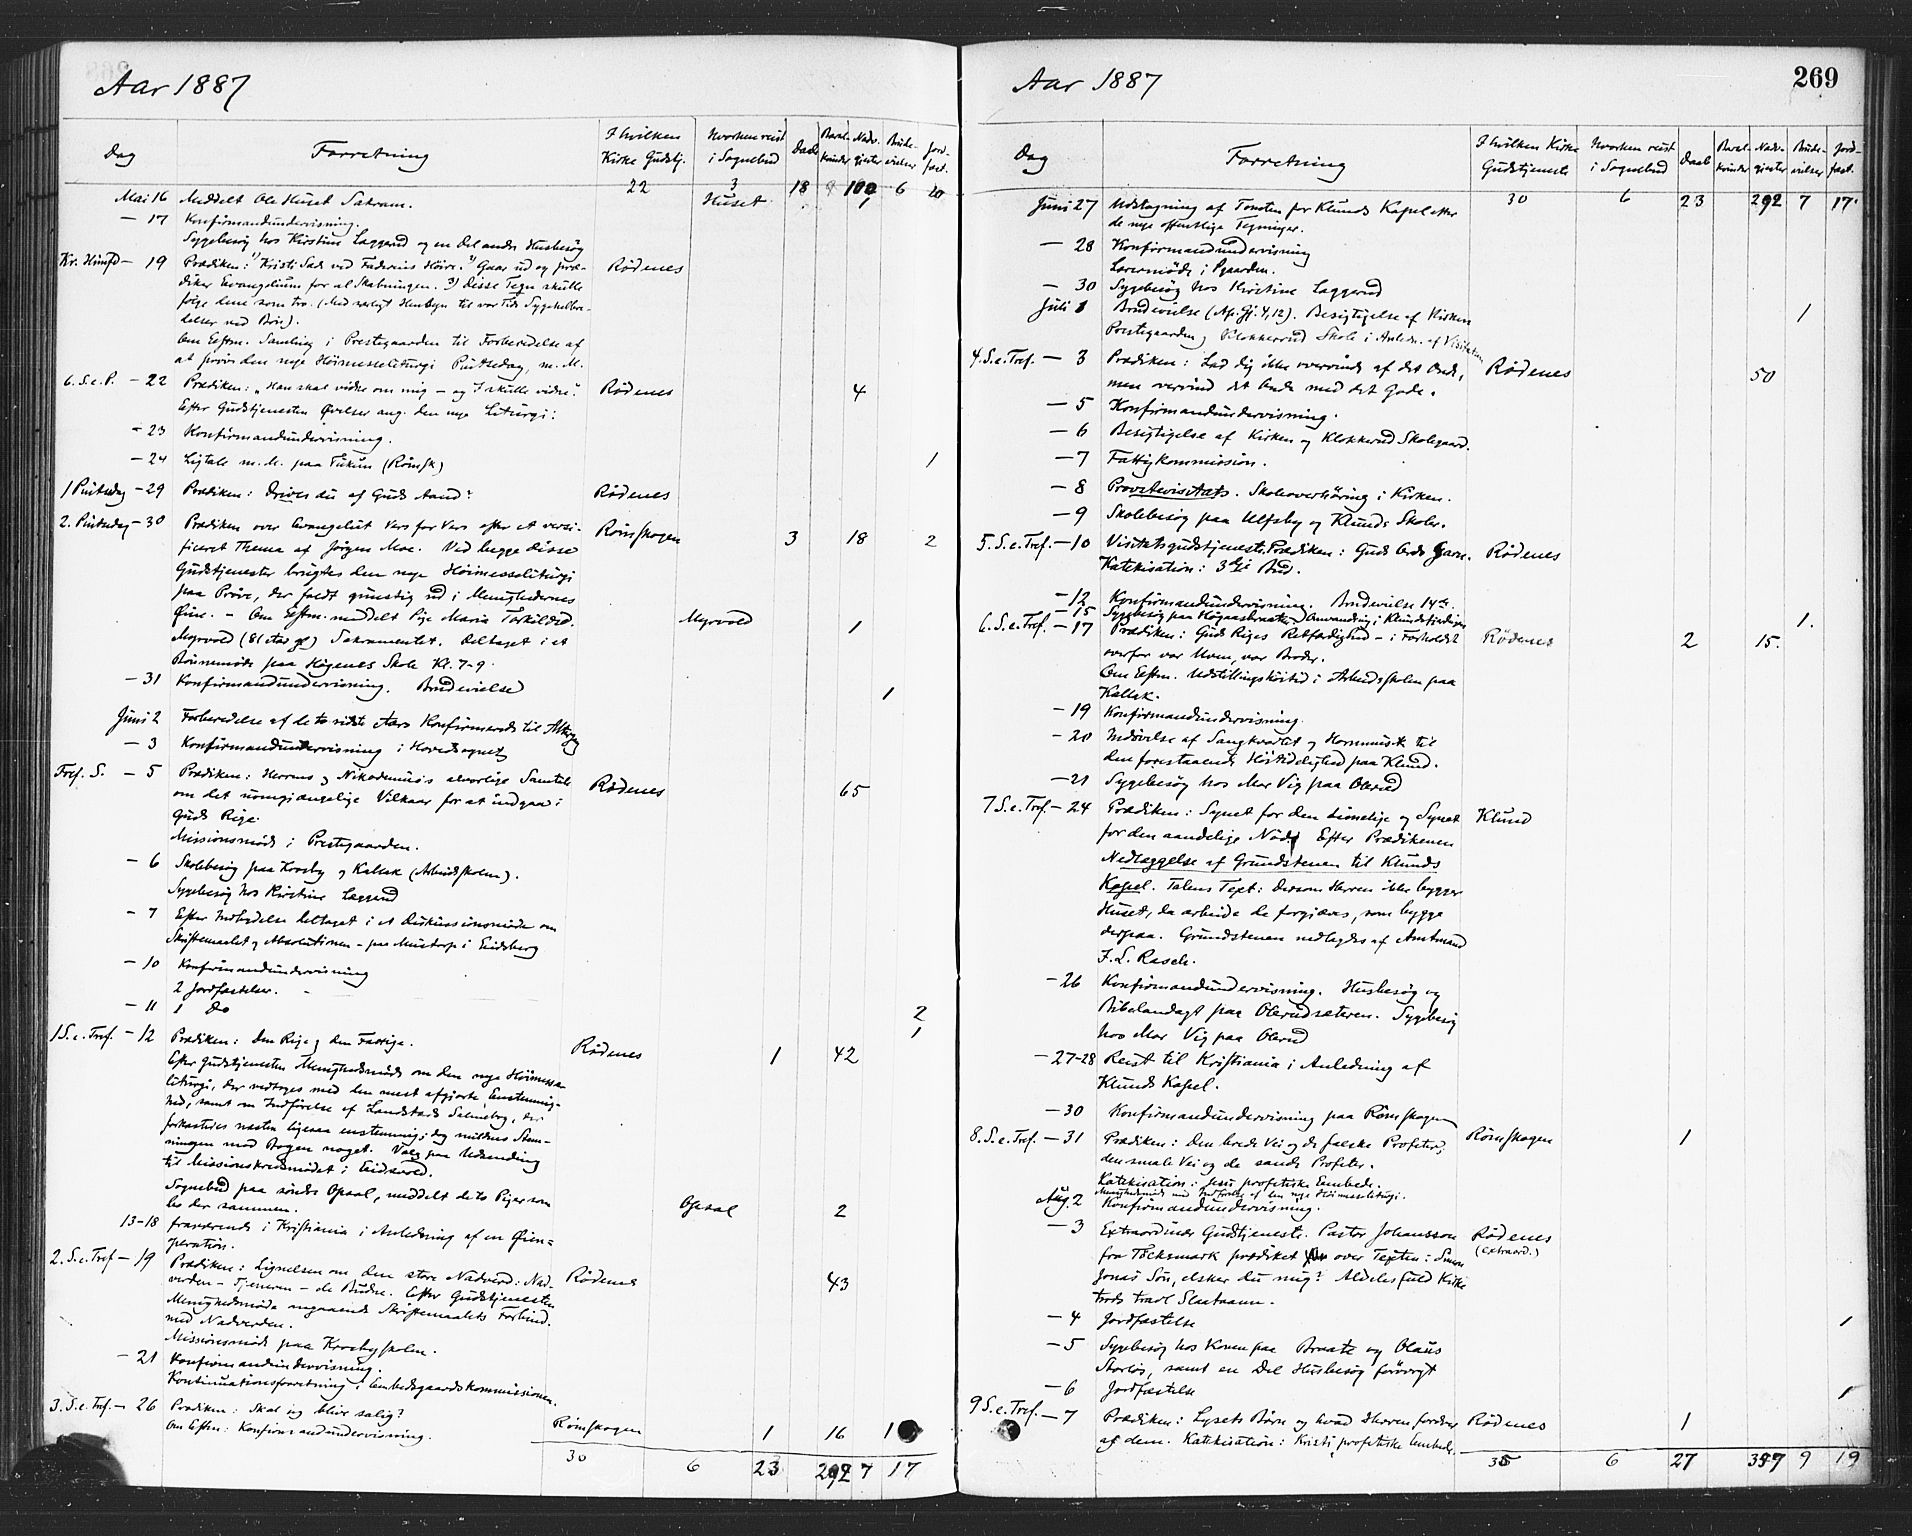 Aar 1887
Dag
Forretning
I hvilken
Kirke Gudstj.
Hvorhen reist
i Sognebud
Daab
Barsel-
kvinder
Nadv.
gjester
Brude-
vielser
Jord-
fæst.
22 3 18 9 102 6 20
Mai 16 Meddelt Ole Huset Sakram. Huset 1
— 17 Konfirmandundervisning.
Sygebesøg hos Kirstine Laggerud og en Del andre Husbesøg
Kr. Himfd — 19 Prædiken: 1) Kristi Sæde ved Faderens Høire. 2) Gaar ud og præ- Rødenes
diker Evangelium for al Skabningen. 3) Disse Tegn skulle
følge dem som tro. (Med særligt Hensyn til vor Tids Sygehelbre-
delser ved Bøn).
Om Eftm. Samling i Prestegaarden til Forberedelse af
at prøve den nye Høimesseliturgi Pintsedag, m. M.
6. S. e. P. — 22 Prædiken: "Han skal vidne om mig — og I skulle vidne". Rødenes 4
Efter Gudstjenesten Øvelser ang. den nye Liturgi:
— 23 Konfirmandundervisning.
— 24 Ligtale m. M. paa Tukun (Rømsk) 1
1 Pintsedag — 29 Prædiken: Drives du af Guds Aand? Rødenes
2. Pintsedag — 30 Prædiken over Evangeliet Vers for Vers efter et versi- Rømskogen 3 18 2
ficeret Thema af Jørgen Moe. Ved begge disse
Gudstjenester brugtes den nye Høimesseliturgi
paa Prøve, der faldt gunstig ud i Menighedernes
Øine. — Om Eftm. meddelt Pige Maria Torkildsd. Myrvold 1
Myrvold (81 Aar gl) Sakramentet. Deltaget i et
Bønnemøde paa Høgenes Skole Kl. 7-9.
— 31 Konfirmandundervisning. Brudevielse 1
Juni 2 Forberedelse af de to sidste Aars Konfirmerede til Altergg
— 3 Konfirmandundervisning i Hovedsognet
Tref. S. — 5 Prædiken: Herrens og Nikodemus's alvorlige Samtale Rødenes 65
om det uomgjængelige Vilkaar for at indgaa i
Guds Rige.
Missionsmøde i Prestegaarden.
— 6 Skolebesøg paa Krosby og Kallak (Arbeidsskolen).
Sygebesøg hos Kirstine Laggerud
— 7 Efter Indbydelse deltaget i et Diskussionsmøde om
Skriftemaalet og Absolutionen — paa Mustorp i Eidsberg
— 10 Konfirmandundervisning
2 Jordfæstelser. 2
— 11 1 Do 1
1 S. e. Tref. — 12 Prædiken: Den Rige og den Fattige. Rødenes 1 42
Efter Gudstjenesten Menighedsmøde om den nye Høimesse-
liturgi, der vedtoges med den mest afgjorte Enstemmig-
hed, samt om Indførelse af Landstads Salmebog, der
forkastedes næsten ligesaa enstemmig; dog mildnes Stem-
ningen mod Bogen noget. Valg paa Udsending
til Missionskredsmødet i Eidsvold.
Sognebud paa søndre Opsal, meddelt de to Piger som Opsal 2
bo der sammen.
13-18 fraværende i Kristiania i Anledning af en Øien-
peration.
2. S. e. Tref — 19 Prædiken: Lignelsen om den store Nadverd: Nad- Rødenes 43
verden — Tjeneren — de Budne. Efter Gudstjenesten
Menighedsmøde angaaende Skriftemaalets Forbind.
med Nadverden.
Missionsmøde paa Krosbyskolen.
— 21 Konfirmandundervisning.
Kontinuationsforretning i Embedsgaardskommissionen.
3. S. e. Tref. — 26 Prædiken: Skal jeg blive salig? Rømskogen 1 16 1
Om Eftm: Konfirmandundervisning.
30 6 23 292 7 17
Aar 1887
269
Dag
Forretning
I hvilken Kirke
Gudstjeneste
Hvorhen reist
i Sognebud
Daab
Barsel-
kvinder
Nadv.
gjester
Brude-
vielser
Jord-
fæst.
30 6 23 292 7 17
Juni 27 Udstagning af Tomten for Klunds Kapel efter
de nye offentlige Tegninger.
— 28 Konfirmandundervisning
Lærermøde i Pgaarden.
— 30 Sygebesøg hos Kirstine Laggerud
Juli 1 Brudevielse (Ap. Gj. 4,12). Besigtigelse af Kirken 1
Prestegaarden, Klokkerud Skole i Anledn. af Visitatsen
4. S. e. Tref. — 3 Prædiken: Lad dig ikke overvinde af det Onde, Rødenes 50
men overvind det Onde med det Gode.
— 5 Konfirmandundervisning.
— 6 Besigtigelse af Kirken og Klokkerud Skolegaard.
— 7 Fattigkommission.
— 8 Provstevisitats. Skoleoverhøring i Kirken.
— 9 Skolebesøg paa Ulfsby og Klunds Skoler.
5. S. e. Tref. — 10 Visitatsgudstjeneste. Prædiken: Guds Ords Garn. Rødenes
Katekisation: 3die Bud.
— 12 Konfirmandundervisning. Brudevielse 14de. 1.
— 15 Sygebesøg paa Høgaasbraaten, Anvending i Klundefjerdingen
6. S. e. Tref. — 17 Prædiken: Guds Riges Retfærdighed — i Forholdet Rødenes 2 15.
overfor vor Uven, vor Broder.
Om Eftm. Udstillingshøitid i Arbeidsskolen paa
Kallak.
— 19 Konfirmandundervisning.
— 20 Indøvelse af Sangkvartet og Hornmusik til
den forestaaende Høitidelighed paa Klund.
— 21 Sygebesøg hos Mor Vig paa Olerud
7 S. e. Tref. — 24 Prædiken: Synet for den timelige og Synet Klund
for den aandelige Nød. Efter Prædikenen
Nedlæggelse af Grundstenen til Klunds
Kapel. Talens Text: Dersom Herren ikke bygger
Huset, da arbeide de forgjæves, som bygge
derpaa. Grundstenen nedlagdes af Amtmand
I. L. Rasch.
— 26 Konfirmandundervisning. Husbesøg og
Bibelandagt paa Olerudsæteren. Sygebesøg
hos Mor Vig paa Olerud
— 27-28 Reist til Kristiania i Anledning af
Klunds Kapel.
— 30 Konfirmandundervisning paa Rømskogen
8. S. e. Tref. — 31 Prædiken: Den brede Vei og de falske Profeter, Rømskogen 1
den smale Vei og de sande Profeter.
Katekisation: Jesu profetiske Embede.
Menighedsmøde ang Indførelse af den nye Høimesseliturgi.
Aug. 2 Konfirmandundervisning.
— 3 Extraordinær Gudstjeneste. Pastor Johansson Rødenes
(extraord.)
fra Töcksmark prædiket over Texten: Simon
Jonas Søn, elsker du mig? Aldeles fuld Kirke
trods travl Slaataann.
— 4 Jordfæstelse 1
— 5 Sygebesøg hos Konen paa Braate og Olaus
Storløs, samt en Del Husbesøg forøvrigt
— 6 Jordfæstelse 1
9 S. e. Tref. — 7 Prædiken: Lysets Børn og hvad Herren fordrer Rødenes 1
af dem. Katekisation: Kristi profetiske Embede.
35 6 27 357 9 19